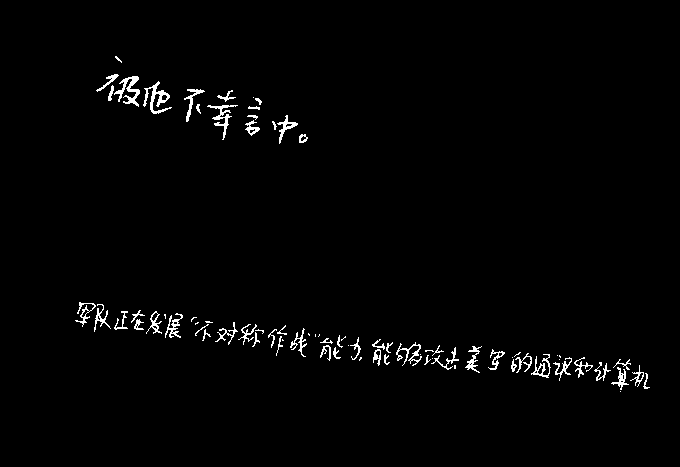 被他不幸言中。
军队正在发展“不对称作战”能力,能够攻击美军的通讯和计算机